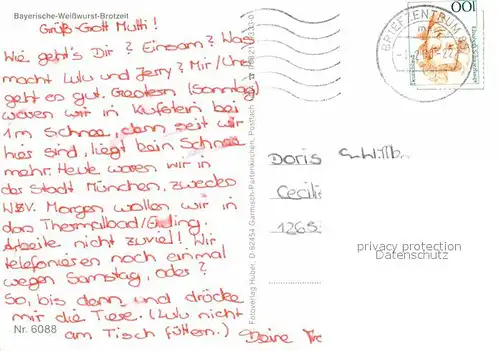 Bayerische-Weißwurst-Brotzeit
Grüß Gott Mutti!
Wie geht's Dir? Einsam? Was
macht Lulu und Jerry? Mir/Uns
geht es gut. Gestern (Sonntag)
waren wir in Kufstein bei
1m Schnee, denn seit wir
hier sind, liegt beim Schnee
mehr. Heute waren wir in
der Stadt München, zwecks
Morgen wollen wir in
das Thermalbad/Erding.
Arbeite nicht zuviel! Wir
telefonieren noch einmal
wegen Samstag, oder?
So, bis dann und drücke
mir die Tiere. (Lulu nicht
am Tisch füttern.) Deine
Nr. 6088
Fotoverlag Huber, D-82454 Garmisch-Partenkirchen, Postfach
BRIEFZENTRUM
100
Doris
Cecili
1265
privacy protection
Datenschutz